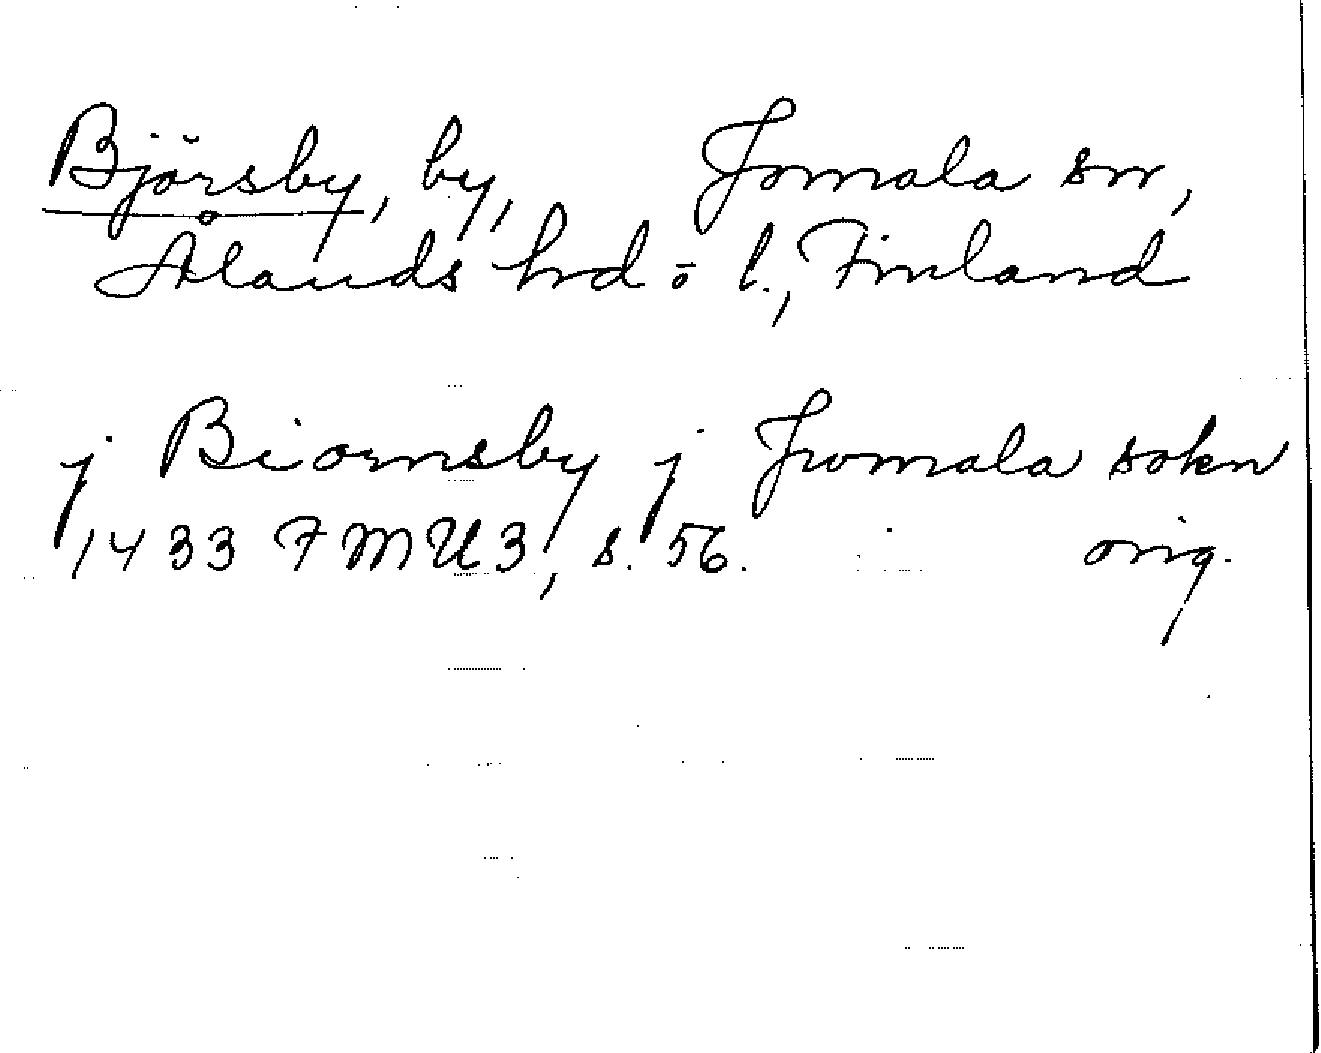 Björsby, by, Jomala sn,
Ålands hd o l., Finland
j Biornsby j Jwmala sokn
1433 FMU3, s. 56. orig.